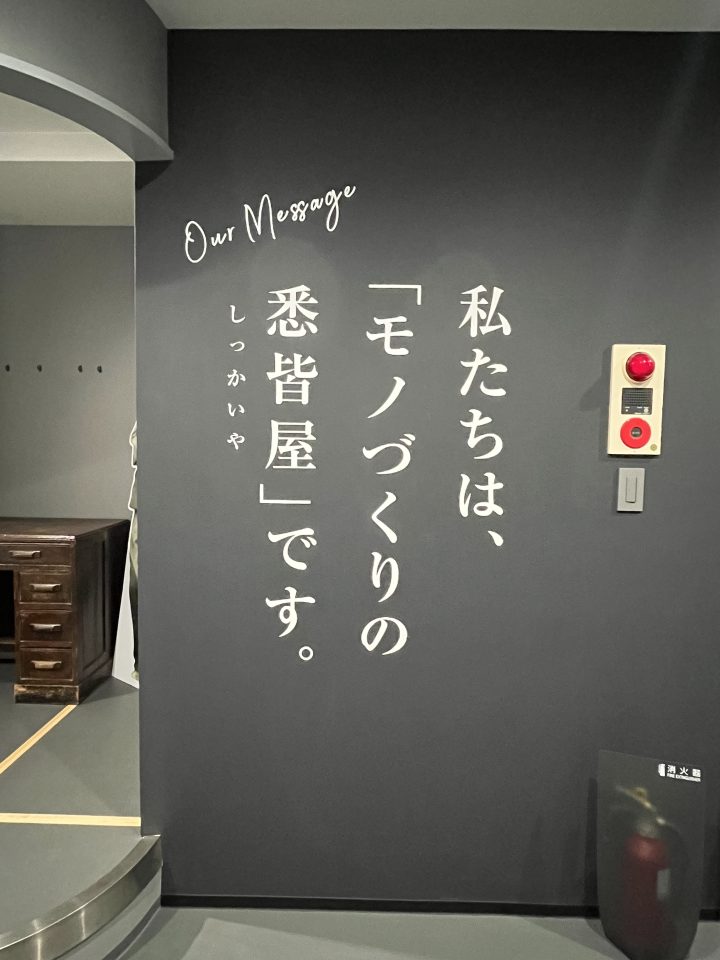 Our Message
私たちは、
「モノづくりの
悉皆屋」です。
しっかいや
消火器
FIRE EXTINGUISHER